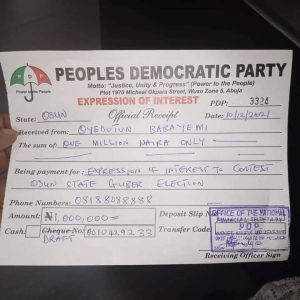 PDP
Power to the People
PEOPLES DEMOCRATIC PARTY
Motto: "Justice, Unity & Progress" (Power to the People)
Plot 1970 Micheal Okpara Street, Wuse Zone 5, Abuja
EXPRESSION OF INTEREST PDP: 3324
State: OSUN Official Receipt Date: 10/12/2021
Received from: OYEDOTUN BABAYEMI
The sum of: ONE MILLION NAIRA ONLY
Being payment for: EXPRESSION OF INTEREST TO CONTEST
OSUN STATE GUBER ELECTION
Phone Numbers: 08138088838
Amount: ₦1,000,000= Deposit Slip N
Cash: Cheque No: 0010429233 Transfer Code:
DRAFT
OFFICE OF THE NATIONAL
FINANCIAL SECRETARY
PDP
Receiving Officer Sign